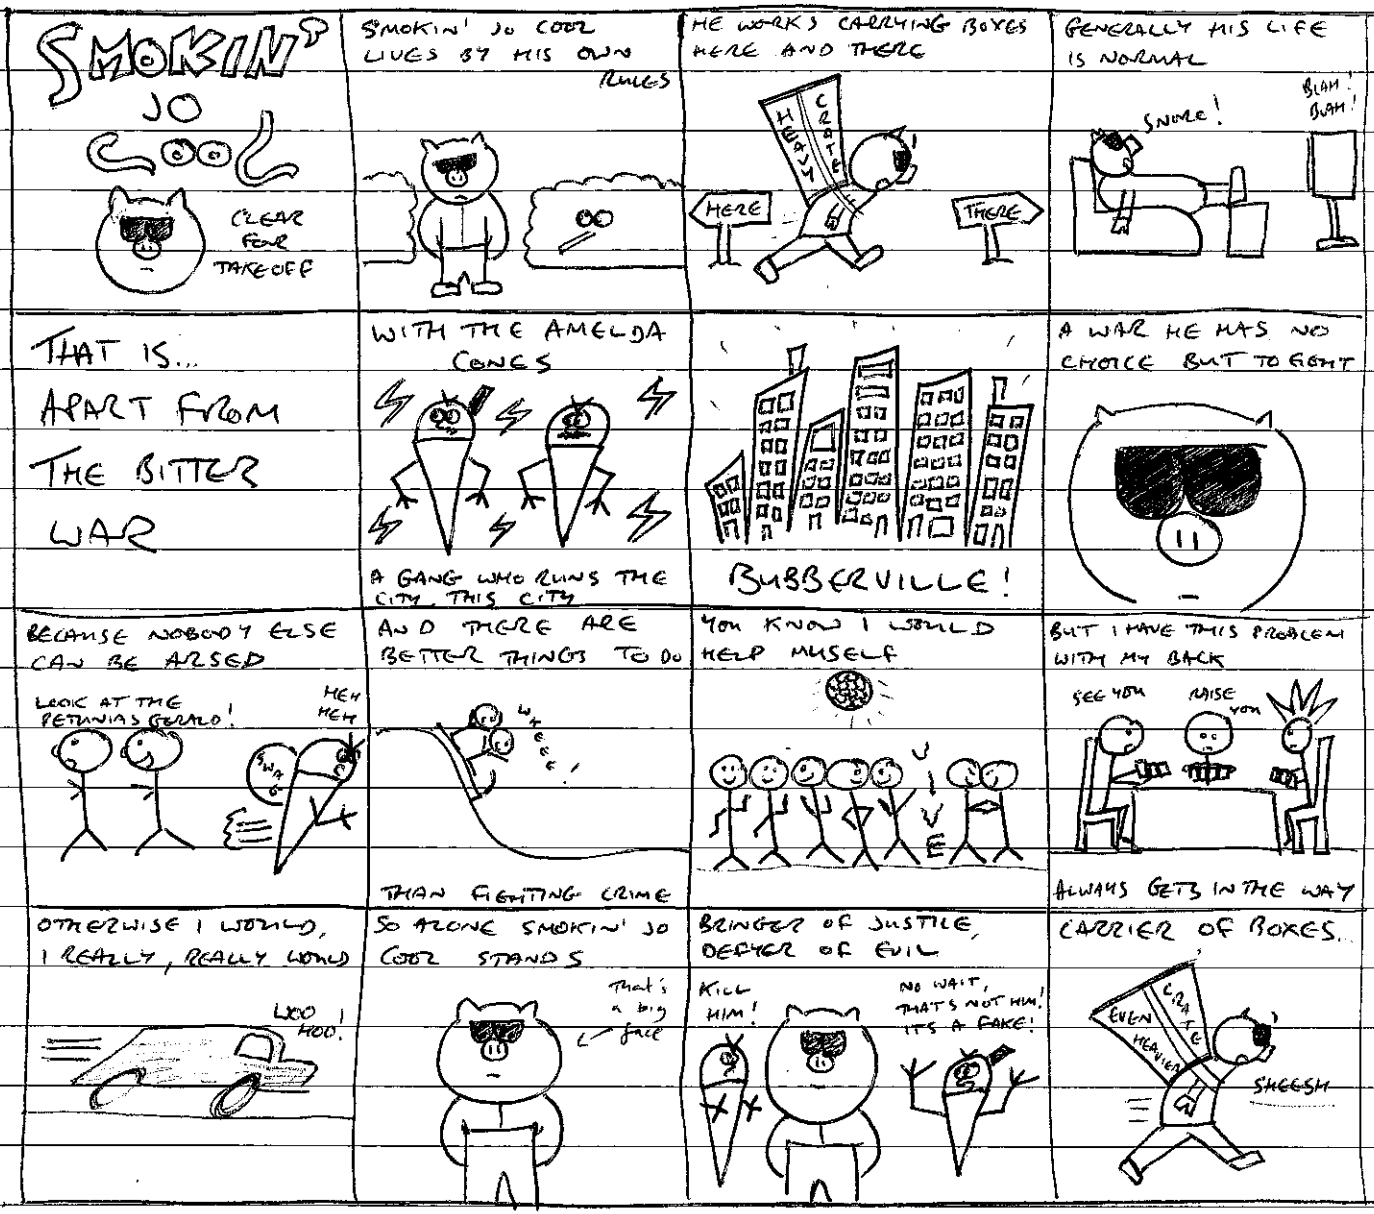 SMOKIN'
JO
COOL
CLEAR
FOR
TAKE OFF
SMOKIN' JO COOL
LIVES BY HIS OWN
RULES
HE WORKS CARRYING BOXES
HERE AND THERE
HEAVY
CRATE
HERE
THERE
GENERALLY HIS LIFE
IS NORMAL
SNORE!
BLAH!
BLAH!
THAT IS...
APART FROM
THE BITTER
WAR
WITH THE AMELDA
CONES
A GANG WHO RUNS THE
CITY, THIS CITY
BUBBERVILLE!
A WAR HE HAS NO
CHOICE BUT TO FIGHT
BECAUSE NOBODY ELSE
CAN BE ARSED
LOOK AT THE
PETUNIAS GERALD!
HEH
HEH
SWAG
AND THERE ARE
BETTER THINGS TO DO
WHEEE!
THAN FIGHTING CRIME
YOU KNOW I WOULD
HELP MUSELF
VIVVE
BUT I HAVE THIS PROBLEM
WITH MY BACK
SEE YOU
RAISE
YOU
ALWAYS GETS IN THE WAY
OTHERWISE I WOULD,
I REALLY, REALLY WOULD
WOO
HOO!
SO ALONE SMOKIN' JO
COOL STANDS
That's
a big
face
BRINGER OF JUSTICE,
DEFYER OF EVIL
KILL
HIM!
NO WAIT,
THAT'S NOT HIM!
IT'S A FAKE!
CARRIER OF BOXES...
EVEN
HEAVIER
CRATE
SHEESH